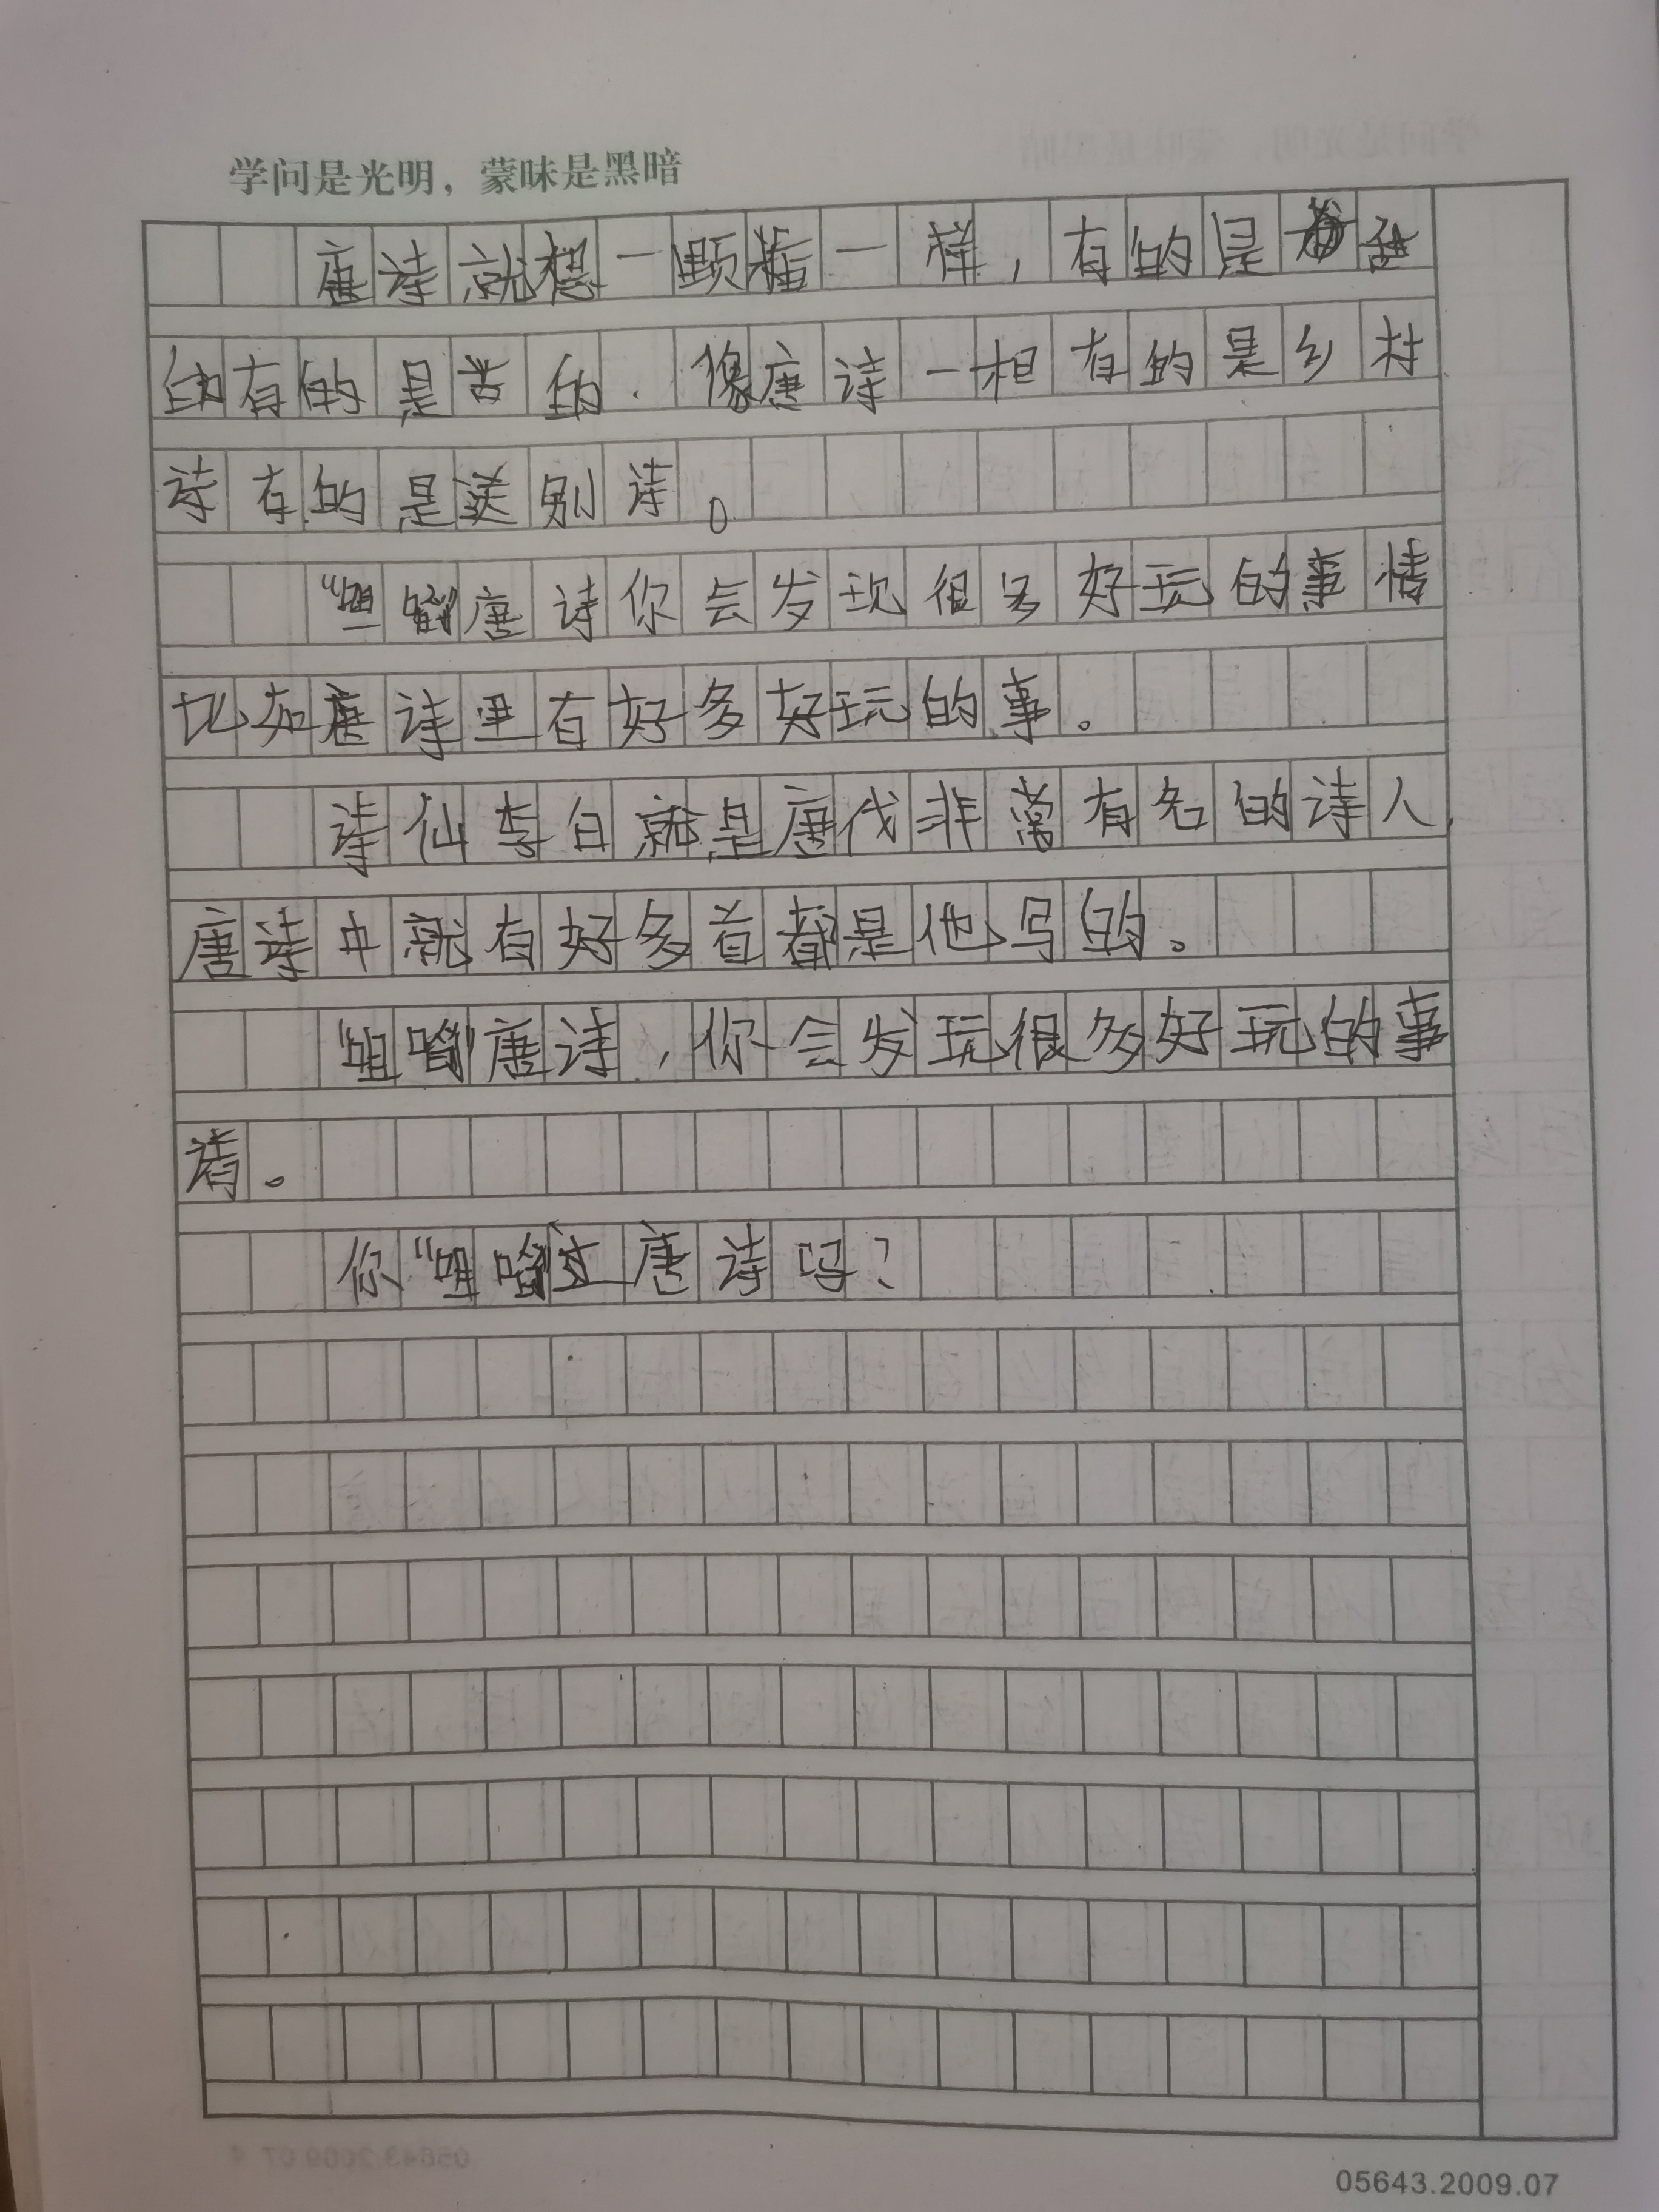 学问是光明，蒙昧是黑暗
唐诗就像一颗糖一样，有的是甜
的有的是苦的．像唐诗一相有的是乡村
诗有的是送别诗。
“咀嚼”唐诗你会发现很多好玩的事情
比如唐诗里有好多好玩的事。
诗仙李白就是唐代非常有名的诗人，
唐诗中就有好多首都是他写的。
“咀嚼”唐诗，你会发玩很多好玩的事
请。
你“咀嚼”过唐诗吗？
05643.2009.07